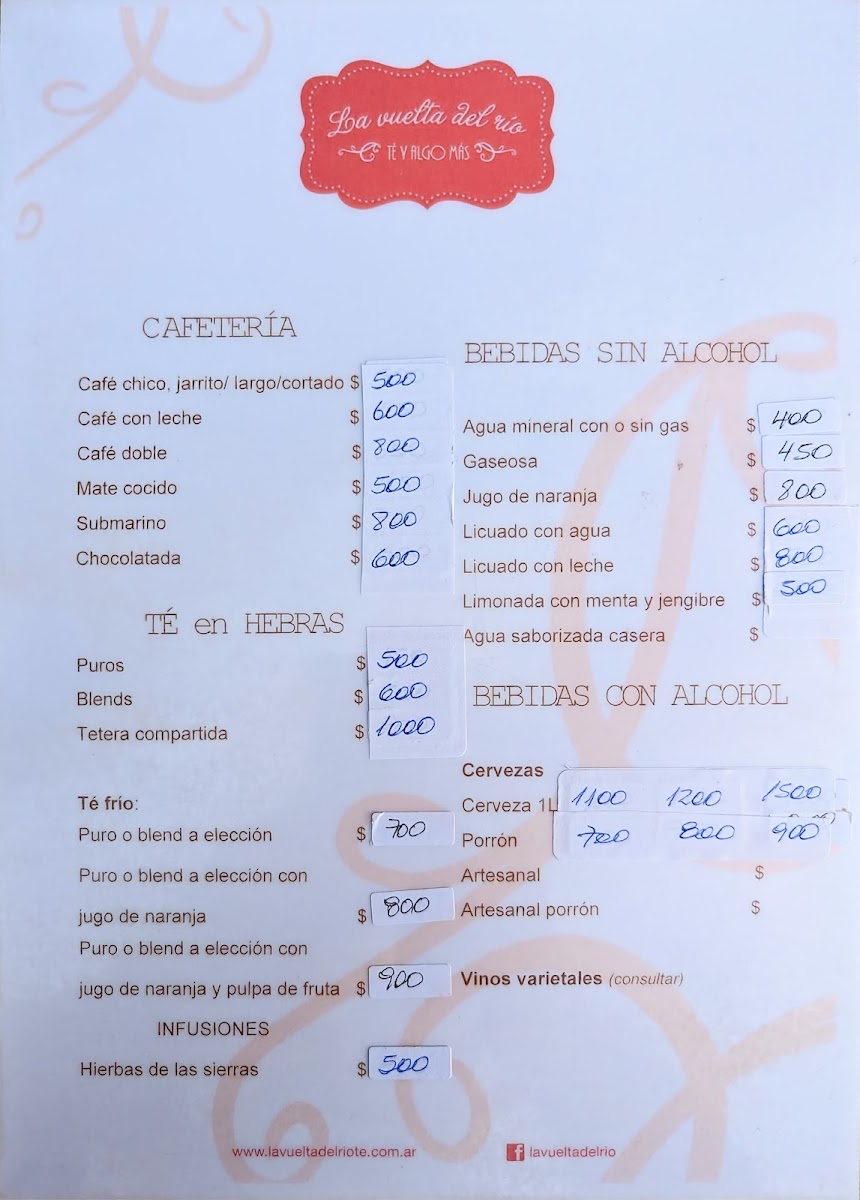 La vuelta del río
TÉ Y ALGO MÁS
CAFETERÍA
Café chico, jarrito/ largo/cortado $ 500
Café con leche $ 600
Café doble $ 800
Mate cocido $ 500
Submarino $ 800
Chocolatada $ 600
TÉ en HEBRAS
Puros $ 500
Blends $ 600
Tetera compartida $ 1000
Té frío:
Puro o blend a elección $ 700
Puro o blend a elección con
jugo de naranja $ 800
Puro o blend a elección con
jugo de naranja y pulpa de fruta $ 900
INFUSIONES
Hierbas de las sierras $ 500
BEBIDAS SIN ALCOHOL
Agua mineral con o sin gas $ 400
Gaseosa $ 450
Jugo de naranja $ 800
Licuado con agua $ 600
Licuado con leche $ 800
Limonada con menta y jengibre $ 500
Agua saborizada casera $
BEBIDAS CON ALCOHOL
Cervezas
Cerveza 1L 1100 1200 1500
Porrón 700 800 900
Artesanal $
Artesanal porrón $
Vinos varietales (consultar)
www.vueltadelriote.com.ar
lavueltadelrio